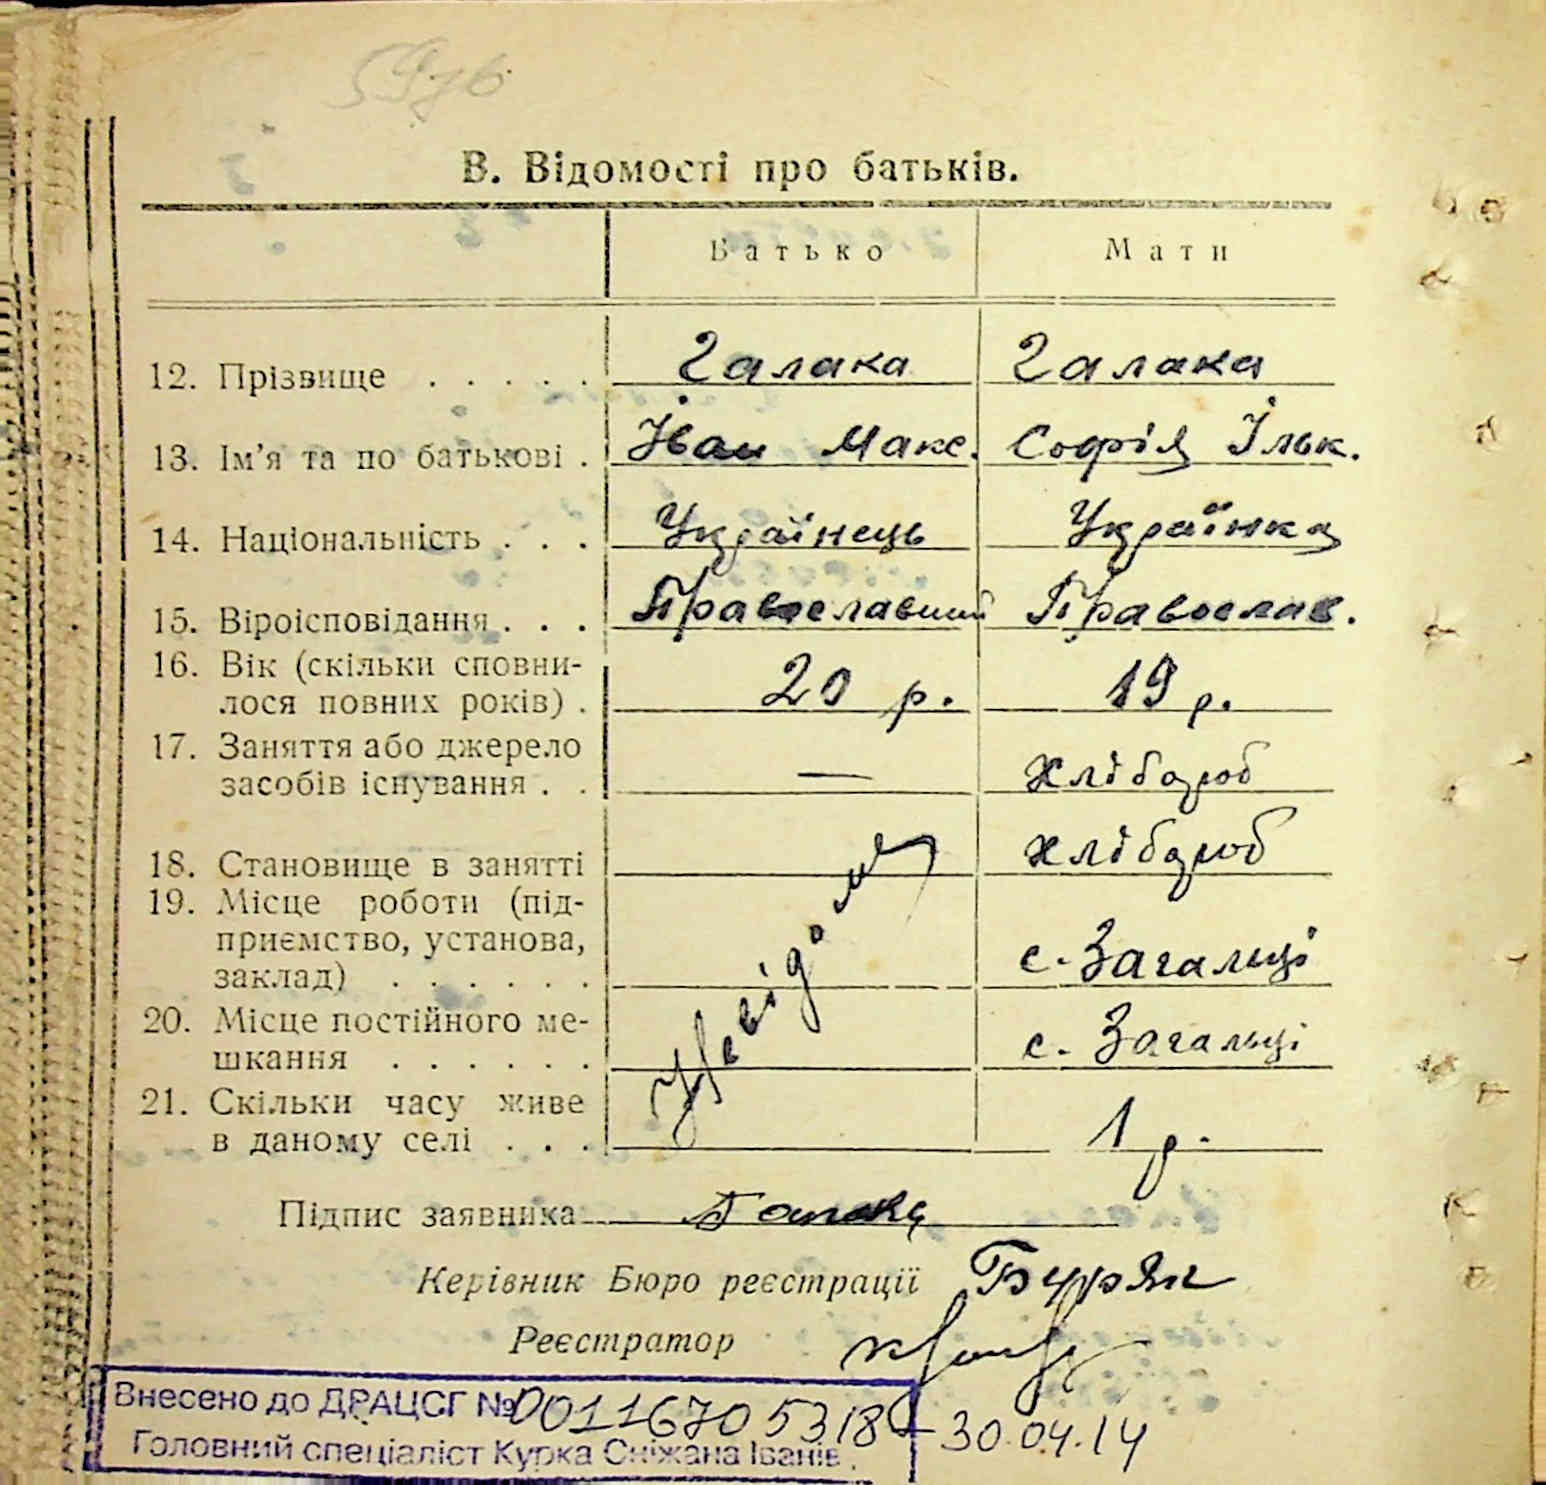 В. Відомості про батьків.
Батько Мати
12. Прізвище . . . . . Галака Галака
13. Ім'я та по батькові . Іван Макс. Софія Ільк.
14. Національність . . . Українець Українка
15. Віроісповідання . . . Православний Православ.
16. Вік (скільки сповни-
лося повних років) . 20 р. 19 р.
17. Заняття або джерело
засобів існування . . — Хлібороб
18. Становище в занятті Хлібороб
19. Місце роботи (під-
приємство, установа,
заклад) . . . . . . с. Загальці
20. Місце постійного ме-
шкання . . . . . . с. Загальці
21. Скільки часу живе
в даному селі . . . 1 р.
Підпис заявника Галака
Керівник Бюро реєстрації Бурян
Реєстратор
Внесено до ДРАЦСГ № 00116705318 30.04.14
Головний спеціаліст Курка Сніжана Іванів.